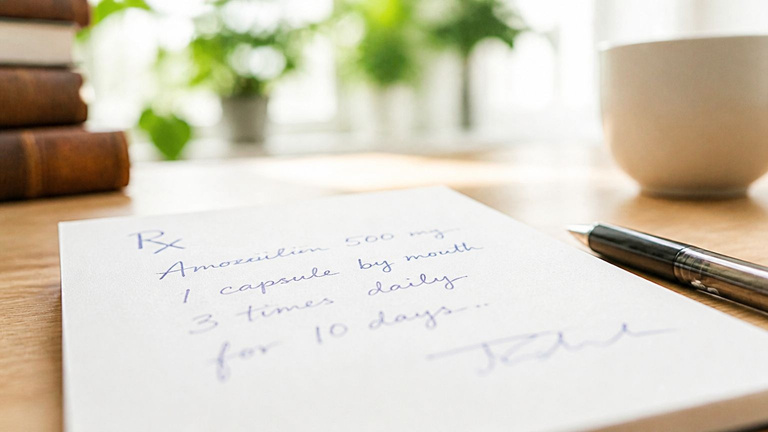 Rx
500 mg
1 capsule by mouth
3 times daily
for 10 days...